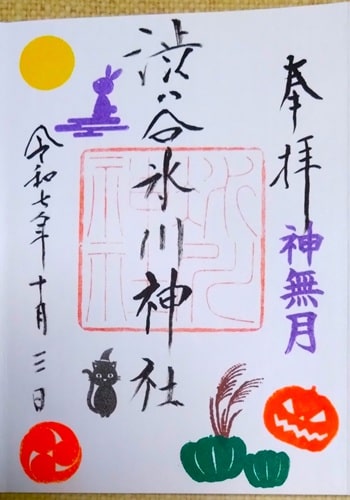 奉拝
神無月
渋谷氷川神社
令和七年十月三日